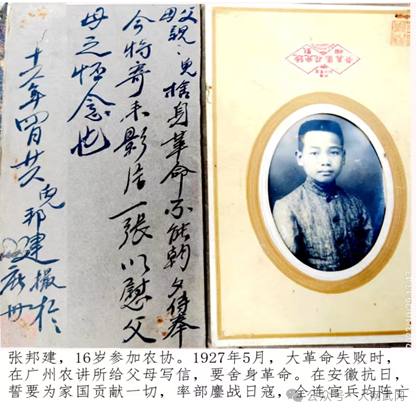 父母親、兒捨身革命不能朝夕侍奉
今特寄来影片一張以慰父
母之怀念也
十六年四月廿八兒邦建摄於
廣州
张邦建，16岁参加农协。1927年5月，大革命失败时，
在广州农讲所给父母写信，要舍身革命。在安徽抗日，
誓要为家国贡献一切，率部鏖战日寇，全连官兵均阵亡